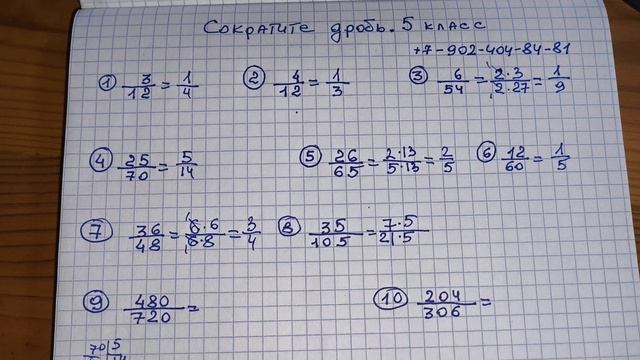 Сократите дробь. 5 класс
+7-902-404-84-81
① 3/12 = 1/4 ② 4/12 = 1/3 ③ 6/54 = 2·3/2·27 = 1/9
④ 25/70 = 5/14 ⑤ 26/65 = 2·13/5·13 = 2/5 ⑥ 12/60 = 1/5
⑦ 36/48 = 6·6/6·8 = 3/4 ⑧ 35/105 = 7·5/21·5
⑨ 480/720 = ⑩ 204/306 =
70|5